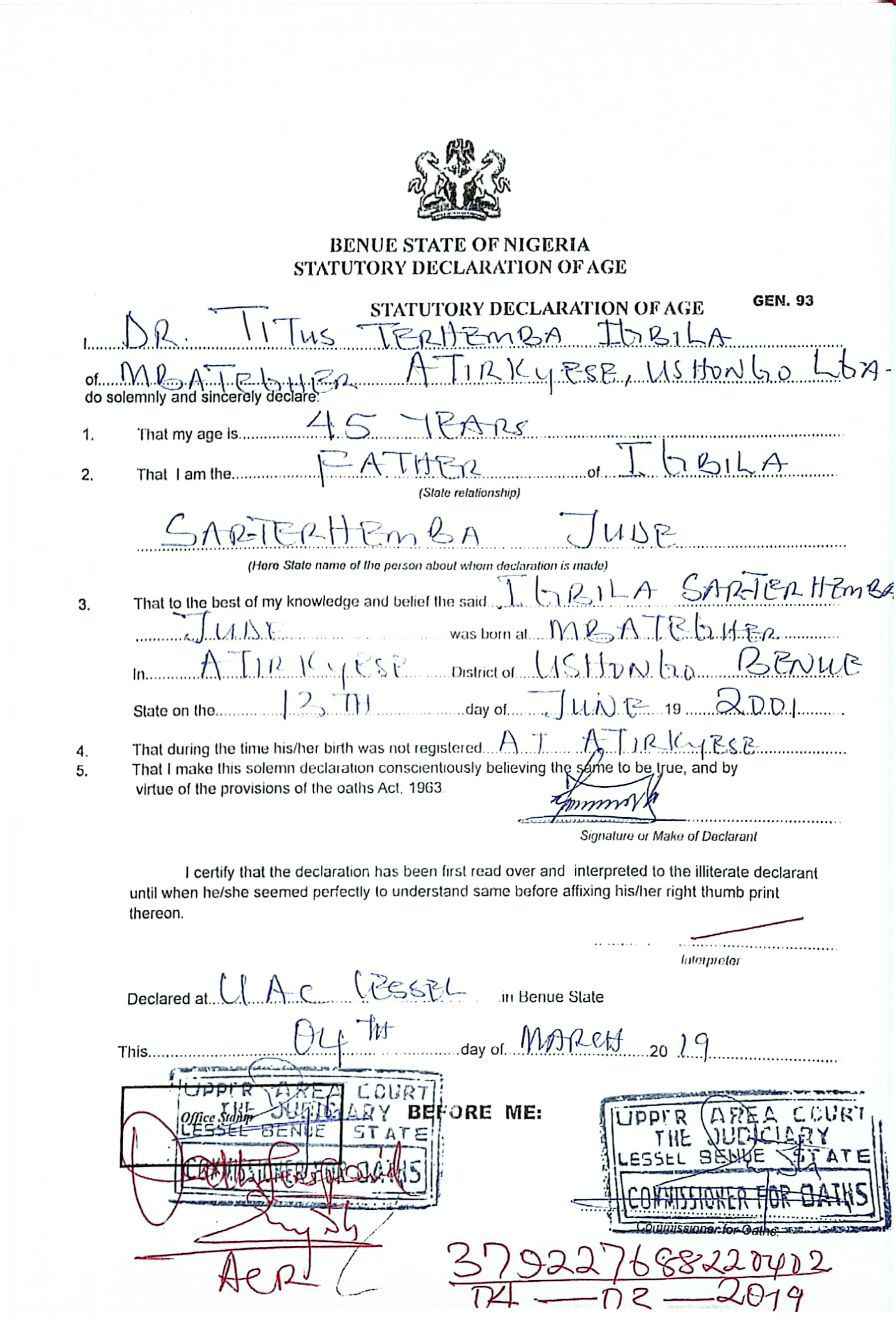 BENUE STATE OF NIGERIA
STATUTORY DECLARATION OF AGE
STATUTORY DECLARATION OF AGE GEN. 93
I DR. TITUS TERHEMBA IGBILA
of MBATEGHER ATIRKYESE, USHONGO LGA-
do solemnly and sincerely declare:
1. That my age is 45 YEARS
2. That I am the FATHER of IGBILA
(State relationship)
SAR-TERHEMBA JUDE
(Here State name of the person about whom declaration is made)
3. That to the best of my knowledge and belief the said IGBILA SAR-TERHEMBA
JUDE was born at MBATEGHER
In ATIRKYESE District of USHONGO BENUE
State on the 13TH day of JUNE 19 2001
4. That during the time his/her birth was not registered AT ATIRKYESE
5. That I make this solemn declaration conscientiously believing the same to be true, and by
virtue of the provisions of the oaths Act, 1963
Signature or Make of Declarant
I certify that the declaration has been first read over and interpreted to the illiterate declarant
until when he/she seemed perfectly to understand same before affixing his/her right thumb print
thereon.
Interpreter
Declared at UAC LESSEL in Benue State
This 04TH day of MARCH 2019
UPPER AREA COURT
Office Stamp THE JUDICIARY BEFORE ME:
LESSEL BENUE STATE
COMMISSIONER FOR OATHS
UPPER AREA COURT
THE JUDICIARY
LESSEL BENUE STATE
COMMISSIONER FOR OATHS
Commissioner for Oaths
379227688220402
2019